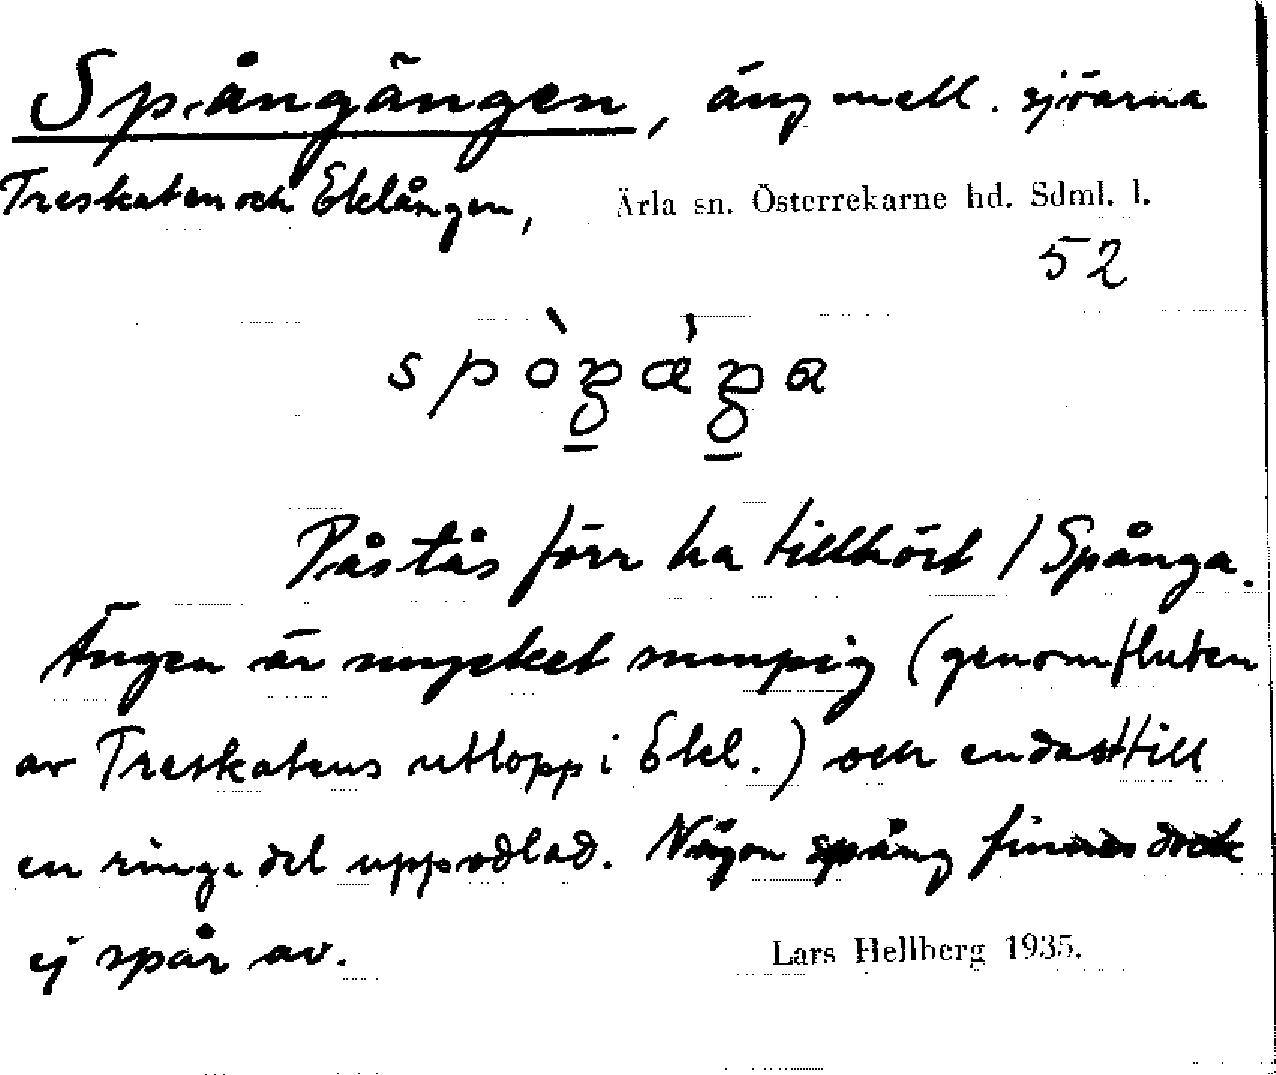 Spångängen, äng mell. sjöarna
Treskaten och Eklången, Ärla sn. Österrekarne hd. Sdml. l.
52
Påstås förr ha tillhört / Spånga.
Ängen är mycket sumpig (genomfluten
av Treskatens utlopp i Ekl.) och endast till
en ringa del uppodlad. Någon spång finnes dock
ej spår av. Lars Hellberg 1935.